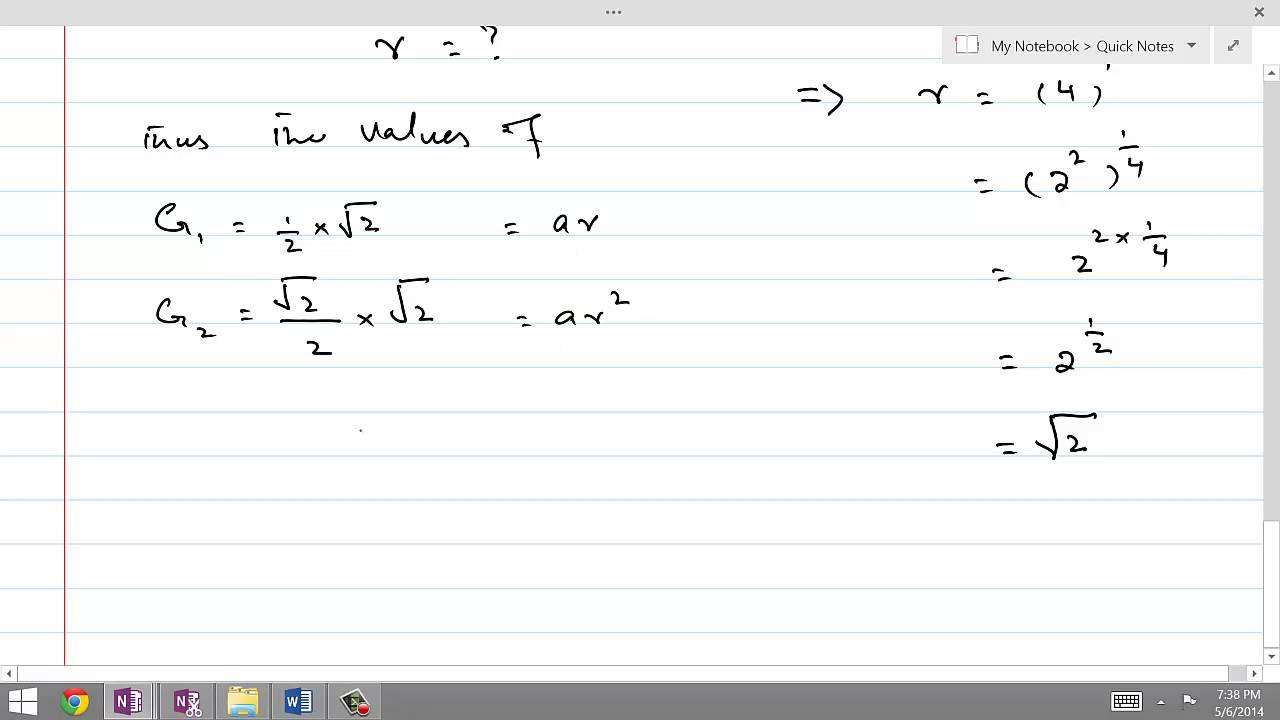 My Notebook > Quick Notes
r = ?
thus the values of
G₁ = 1/2 × √2 = ar
G₂ = √2/2 × √2 = ar²
=> r = (4)
= (2²)^1/4
= 2^2 × 1/4
= 2^1/2
= √2
7:38 PM
5/6/2014